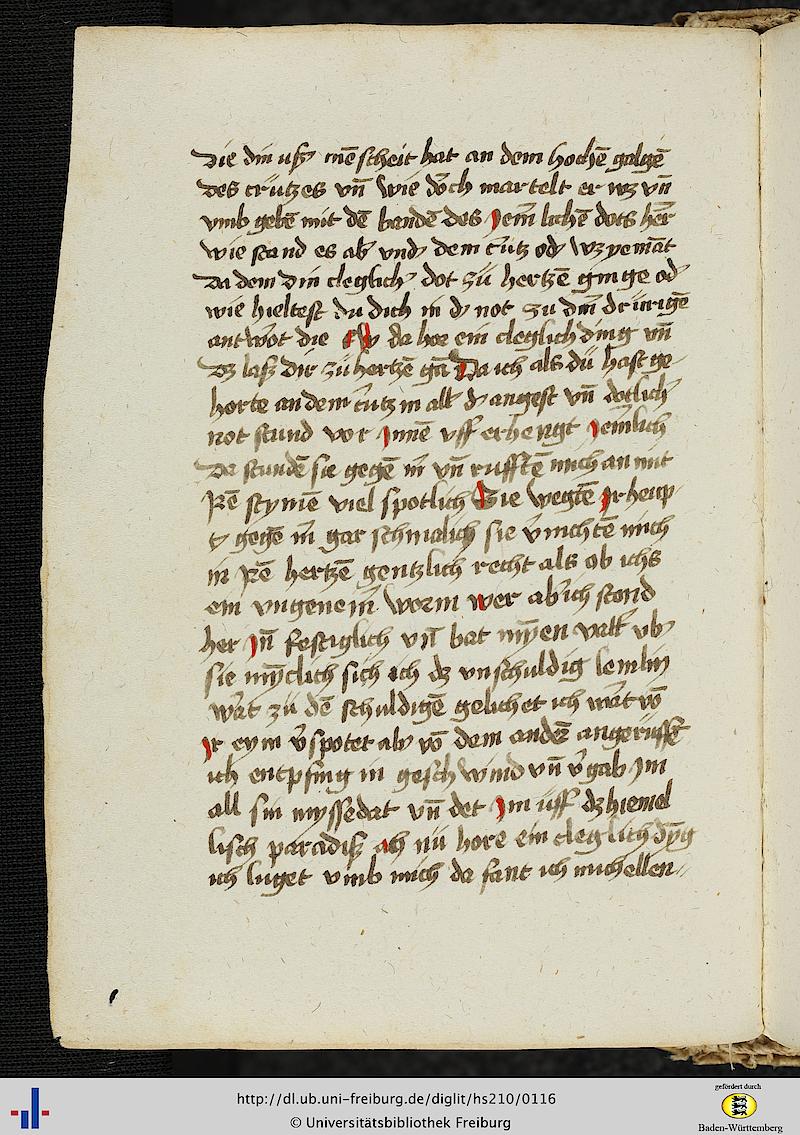 Die din usz mēscheit hat an dem hochē galgē
des crützes vn̄ wie doch martelt er wz vn̄
vmb gebē mit dē bandē des Jemlichē dots her
wie stand es ab vnd dem crutz od wz yemāt
Da dem din cleglich dot zü hertzē ginge od
wie hieltest du dich in d not zu din drurigē
antwot die ew da hor ein cleglich ding vn̄
dz lasz dir zü hertzē gā Da ich als dü hast ge-
horte an dem crutz in all d angest vn̄ dotlich
not stund vor Jnnē vff erhengt Jemlich
Da stundē sie gegē mi vn̄ rufftē mich an mit
Jrē stymē viel spotlich Sie wegtē Jr heup
t gegē mi gar schmalich sie v̄nichtē mich
in Jrē hertzē gentzlich recht als ob ichs
ein vngenem worm wer ab ich stond
her Jn̄ festiglich vn̄ bat myen vatt vb
sie mȳclich sich ich dz vnschuldig lemlin
wart zü dē schuldigē gelichet ich wart vō
Jr eym v̄spotet ab vō dem andē angerufft
ich entpfing in geschwind vn̄ v̄gab Jm
all sin myssedat vn̄ det Jm uff dz hiemel
lisch paradisz ach nü hore ein cleglich dȳg
ich luget vmb mich da fant ich mich ellen-
http://dl.ub.uni-freiburg.de/diglit/hs210/0116
© Universitätsbibliothek Freiburg
gefördert durch
Baden-Württemberg